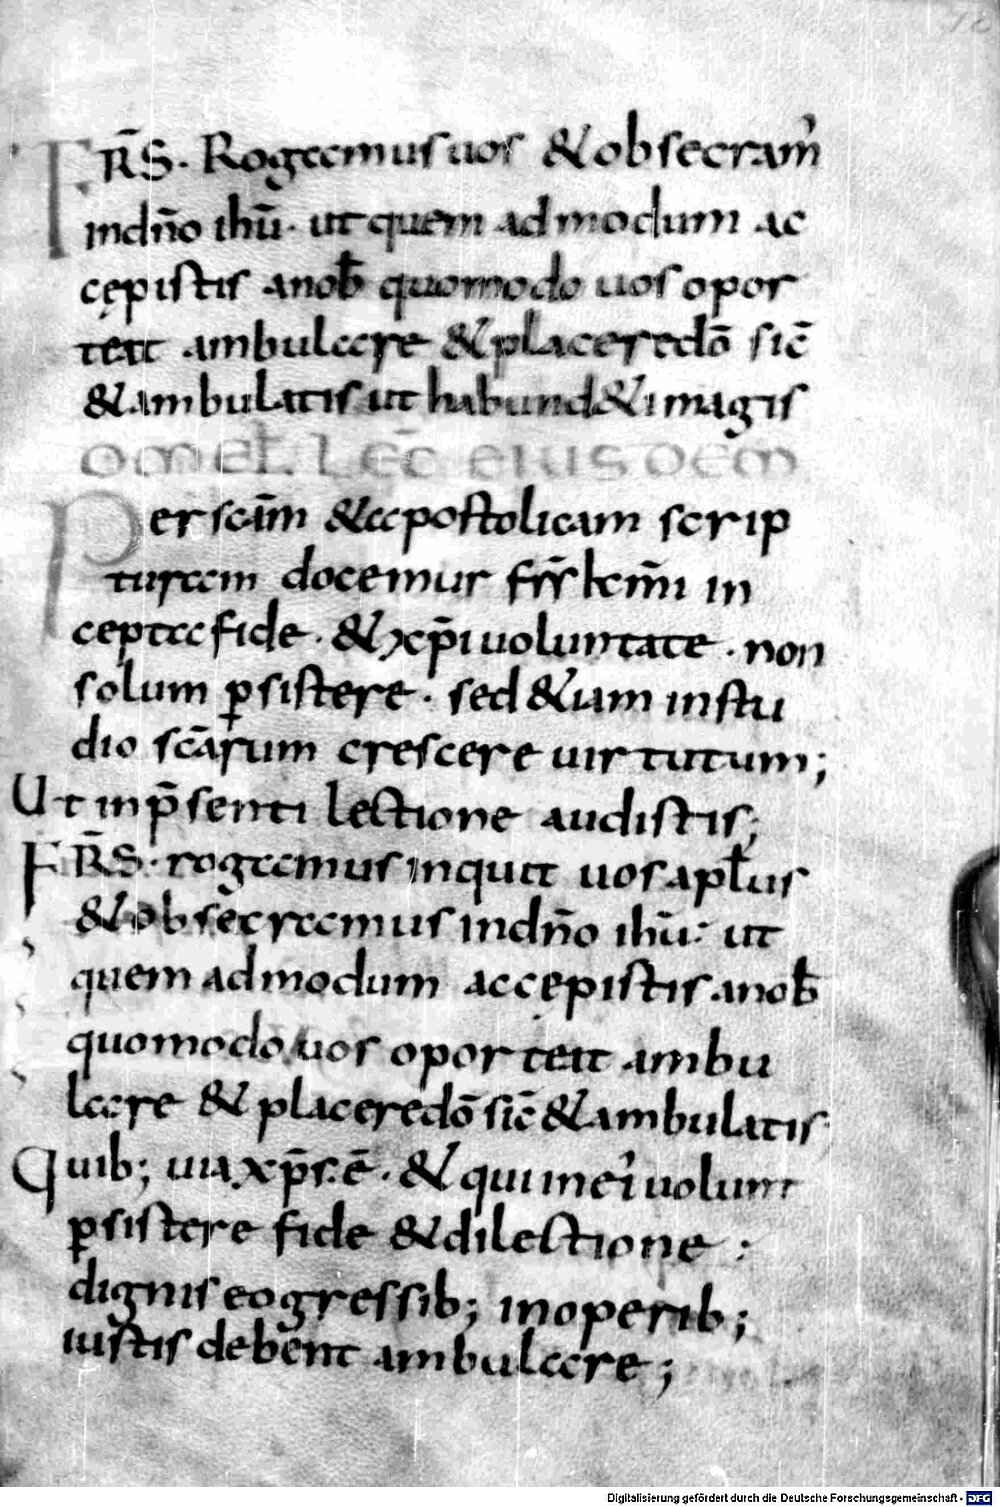 FR̄S. Rogamus uos & obsecram̄
in dn̄o ihū. ut quem ad modum ac
cępistis a nob̄ quomodo uos opor
teat ambulare & placere dō sic̄
& ambulatis ut habund&i magis
OMEL L EC̄ EIUSDEM
Per scām & apostolicam scrip
turam docemur fr̄s km̄i in
cepta fide. & xp̄i uoluntate. non
solum p̱sistere. sed &iam in stu
dio scārum crescere uirtutum;
Ut in p̄senti lectione audistis;
FR̄S. rogamus inquit uos apłus
& obsecramus in dn̄o ihū: ut
quem ad modum accępistis a nob̄
quomodo uos oporteat ambu
lare & placere dō sic̄ & ambulatis
Quib; uia xp̄s. ē. & qui in eī uolunt
p̱sistere fide & dilectione :
dignis eo gressib; in operib;
iustis debent ambulare;
Digitalisierung gefördert durch die Deutsche Forschungsgemeinschaft - DFG